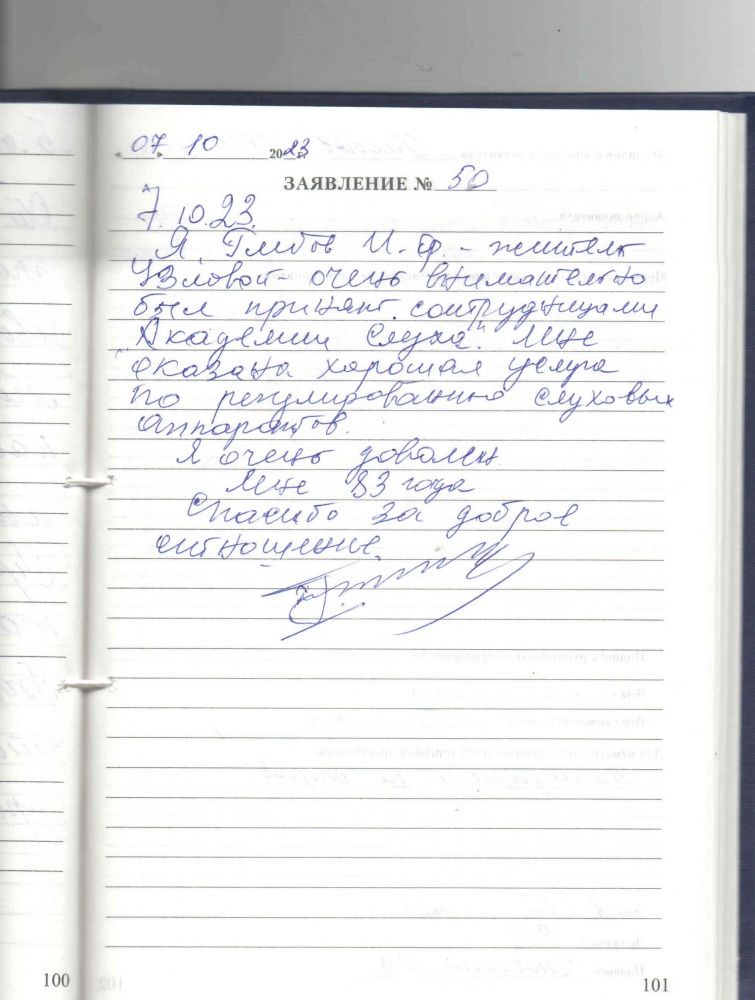 07 10 2023
ЗАЯВЛЕНИЕ № 50
7.10.23.
Я Глебов И.Ф. - житель
Узловой очень внимательно
был принят сотрудницами
"Академии слуха". Мне
оказана хорошая услуга
по регулированию слуховых
аппаратов.
Я очень доволен
Мне 83 года
Спасибо за доброе
отношение.
100
101